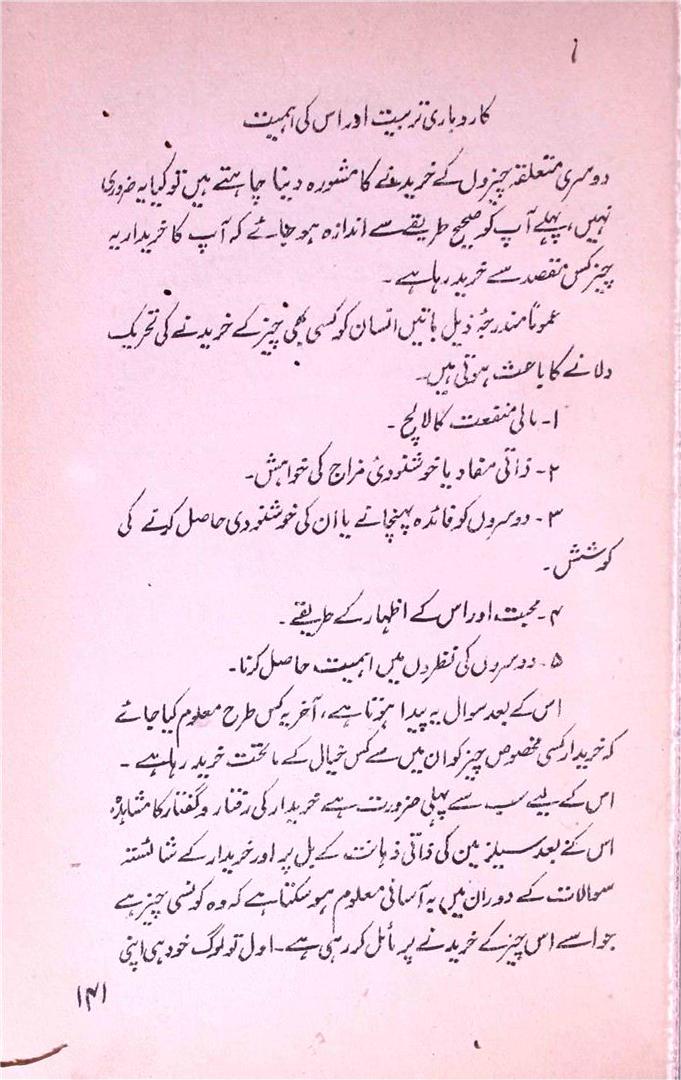 کاروباری تربیت اور اس کی اہمیت
دوسری متعلقہ چیزوں کے خریدنے کا مشورہ دینا چاہتے ہیں تو کیا یہ ضروری
نہیں، پہلے آپ کو صحیح طریقے سے اندازہ ہو جائے کہ آپ کا خریدار یہ
چیز کس مقصد سے خرید رہا ہے۔
عموماً مندرجۂ ذیل باتیں انسان کو کسی بھی چیز کے خریدنے کی تحریک
دلانے کا باعث ہوتی ہیں۔
۱۔ مالی منفعت کا لالچ۔
۲۔ ذاتی مفاد یا خوشنودیٔ مزاج کی خواہش۔
۳۔ دوسروں کو فائدہ پہنچانے یا ان کی خوشنودی حاصل کرنے کی
کوشش۔
۴۔ محبت اور اس کے اظہار کے طریقے۔
۵۔ دوسروں کی نظروں میں اہمیت حاصل کرنا۔
اس کے بعد سوال یہ پیدا ہوتا ہے، آخر یہ کس طرح معلوم کیا جائے
کہ خریدار کسی مخصوص چیز کو ان میں سے کس خیال کے ماتحت خرید رہا ہے۔
اس کے لیے سب سے پہلی ضرورت ہے خریدار کی رفتار و گفتار کا مشاہدہ،
اس کے بعد سیلزمین کی ذاتی ذہانت کے بل پر اور خریدار کے شائستہ
سوالات کے دوران میں بہ آسانی معلوم ہو سکتا ہے کہ وہ کونسی چیز ہے
جو اسے اس چیز کے خریدنے پر مائل کر رہی ہے۔ اول تو لوگ خود ہی اپنی
۱۴۱